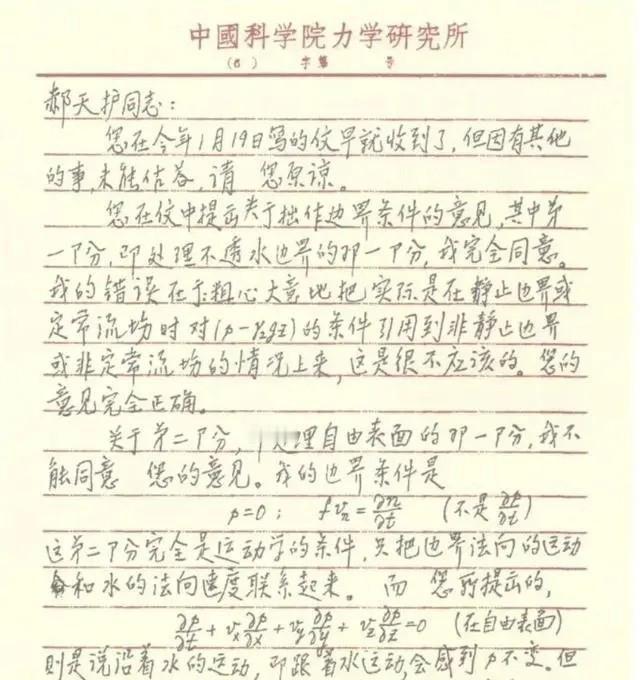 中國科学院力学研究所
( ) 字第 号
郝天护同志：
您在今年1月19日写的信早就收到了，但因有其他
的事，未能佶答，请 您原谅。
您在信中提出关于拙作边界条件的意见，其中第
一部分，即处理不透水边界的那一部分，我完全同意。
我的错误在于粗心大意地把实际是在静止边界或
定常流场时对(p-γ₂gz)的条件引用到非静止边界
或非定常流场的情况上来，这是很不应该的。您的
意见完全正确。
关于第二部分，处理自由表面的那一部分，我不
能同意 您的意见。我的边界条件是
p=0； fvₙ=∂n/∂t (不是∂p/∂t)
这第二部分完全是运动学的条件，只把边界法向的运动
和水的法向速度联系起来。 而 您所提出的，
∂p/∂t+vₓ∂p/∂x+vᵧ∂p/∂y+v_z∂p/∂z=0 (在自由表面)
则是说沿着水的运动，即跟着水运动，会感到p不变。但